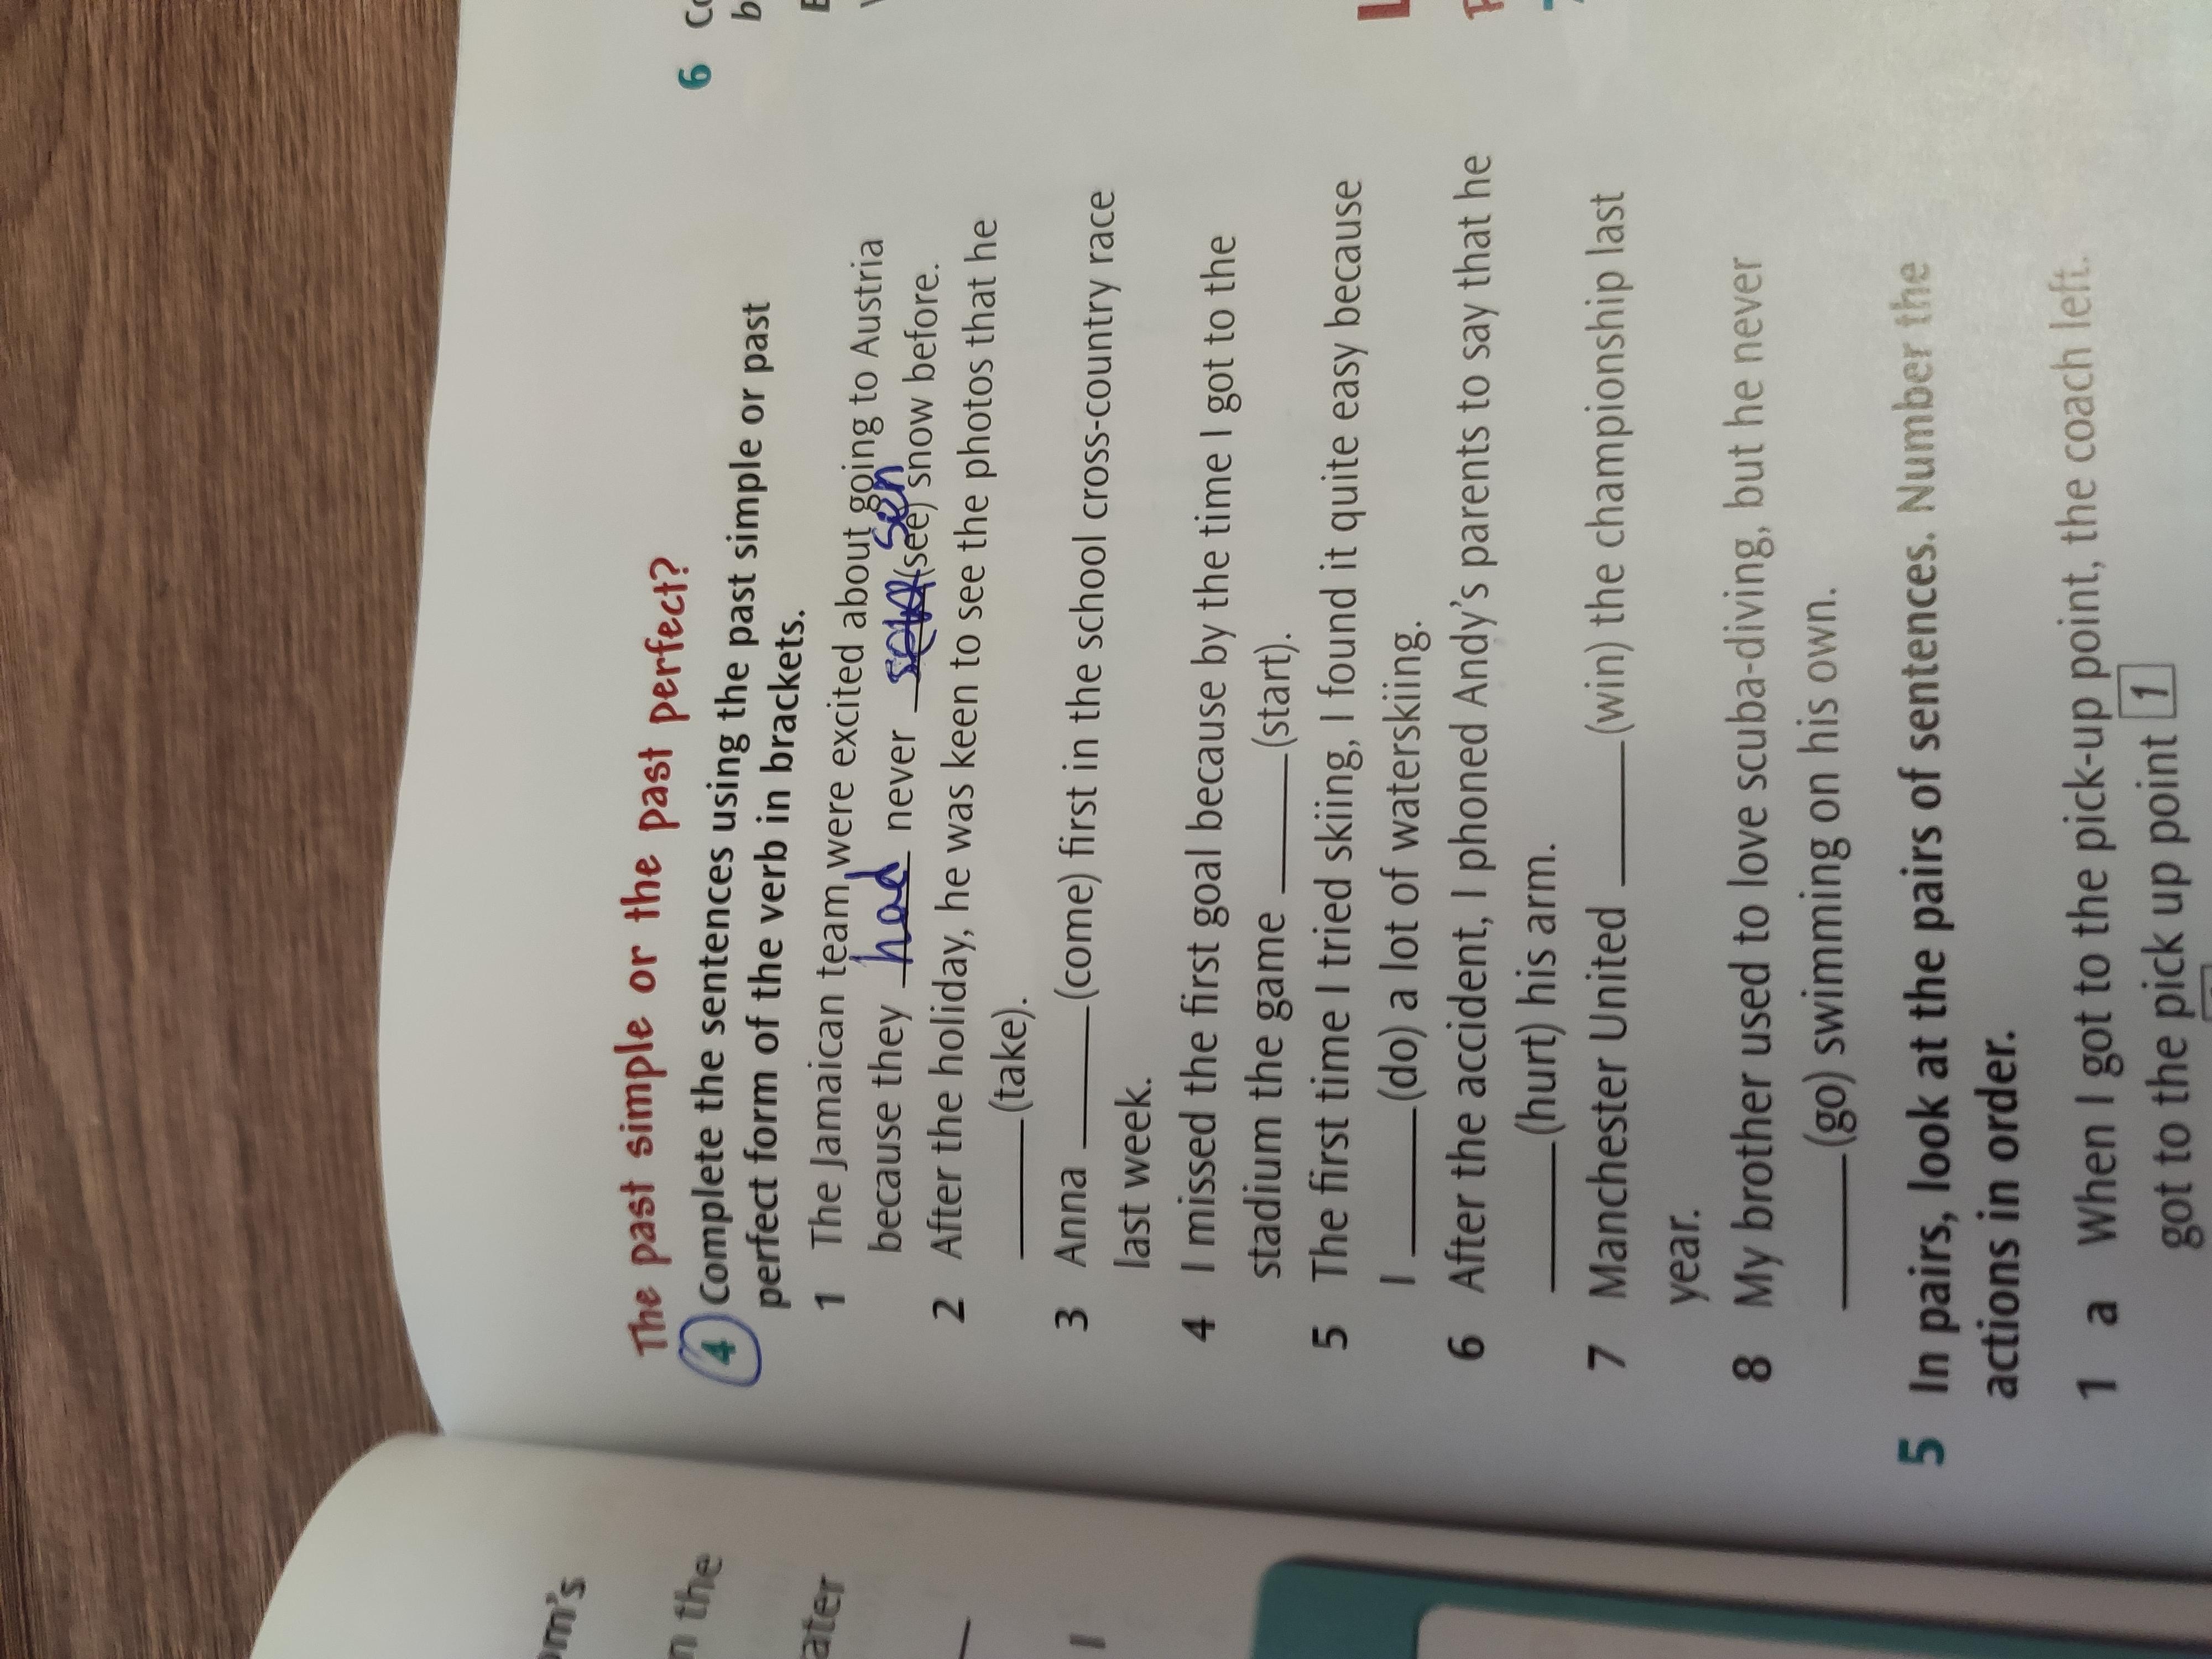 The past simple or the past perfect?
4 Complete the sentences using the past simple or past
perfect form of the verb in brackets.
1 The Jamaican team were excited about going to Austria
because they had never saw (see) sen snow before.
2 After the holiday, he was keen to see the photos that he
______ (take).
3 Anna ______ (come) first in the school cross-country race
last week.
4 I missed the first goal because by the time I got to the
stadium the game ______ (start).
5 The first time I tried skiing, I found it quite easy because
I ______ (do) a lot of waterskiing.
6 After the accident, I phoned Andy's parents to say that he
______ (hurt) his arm.
7 Manchester United ______ (win) the championship last
year.
8 My brother used to love scuba-diving, but he never
______ (go) swimming on his own.
5 In pairs, look at the pairs of sentences. Number the
actions in order.
1 a When I got to the pick-up point, the coach left.
got to the pick up point 1
6
the